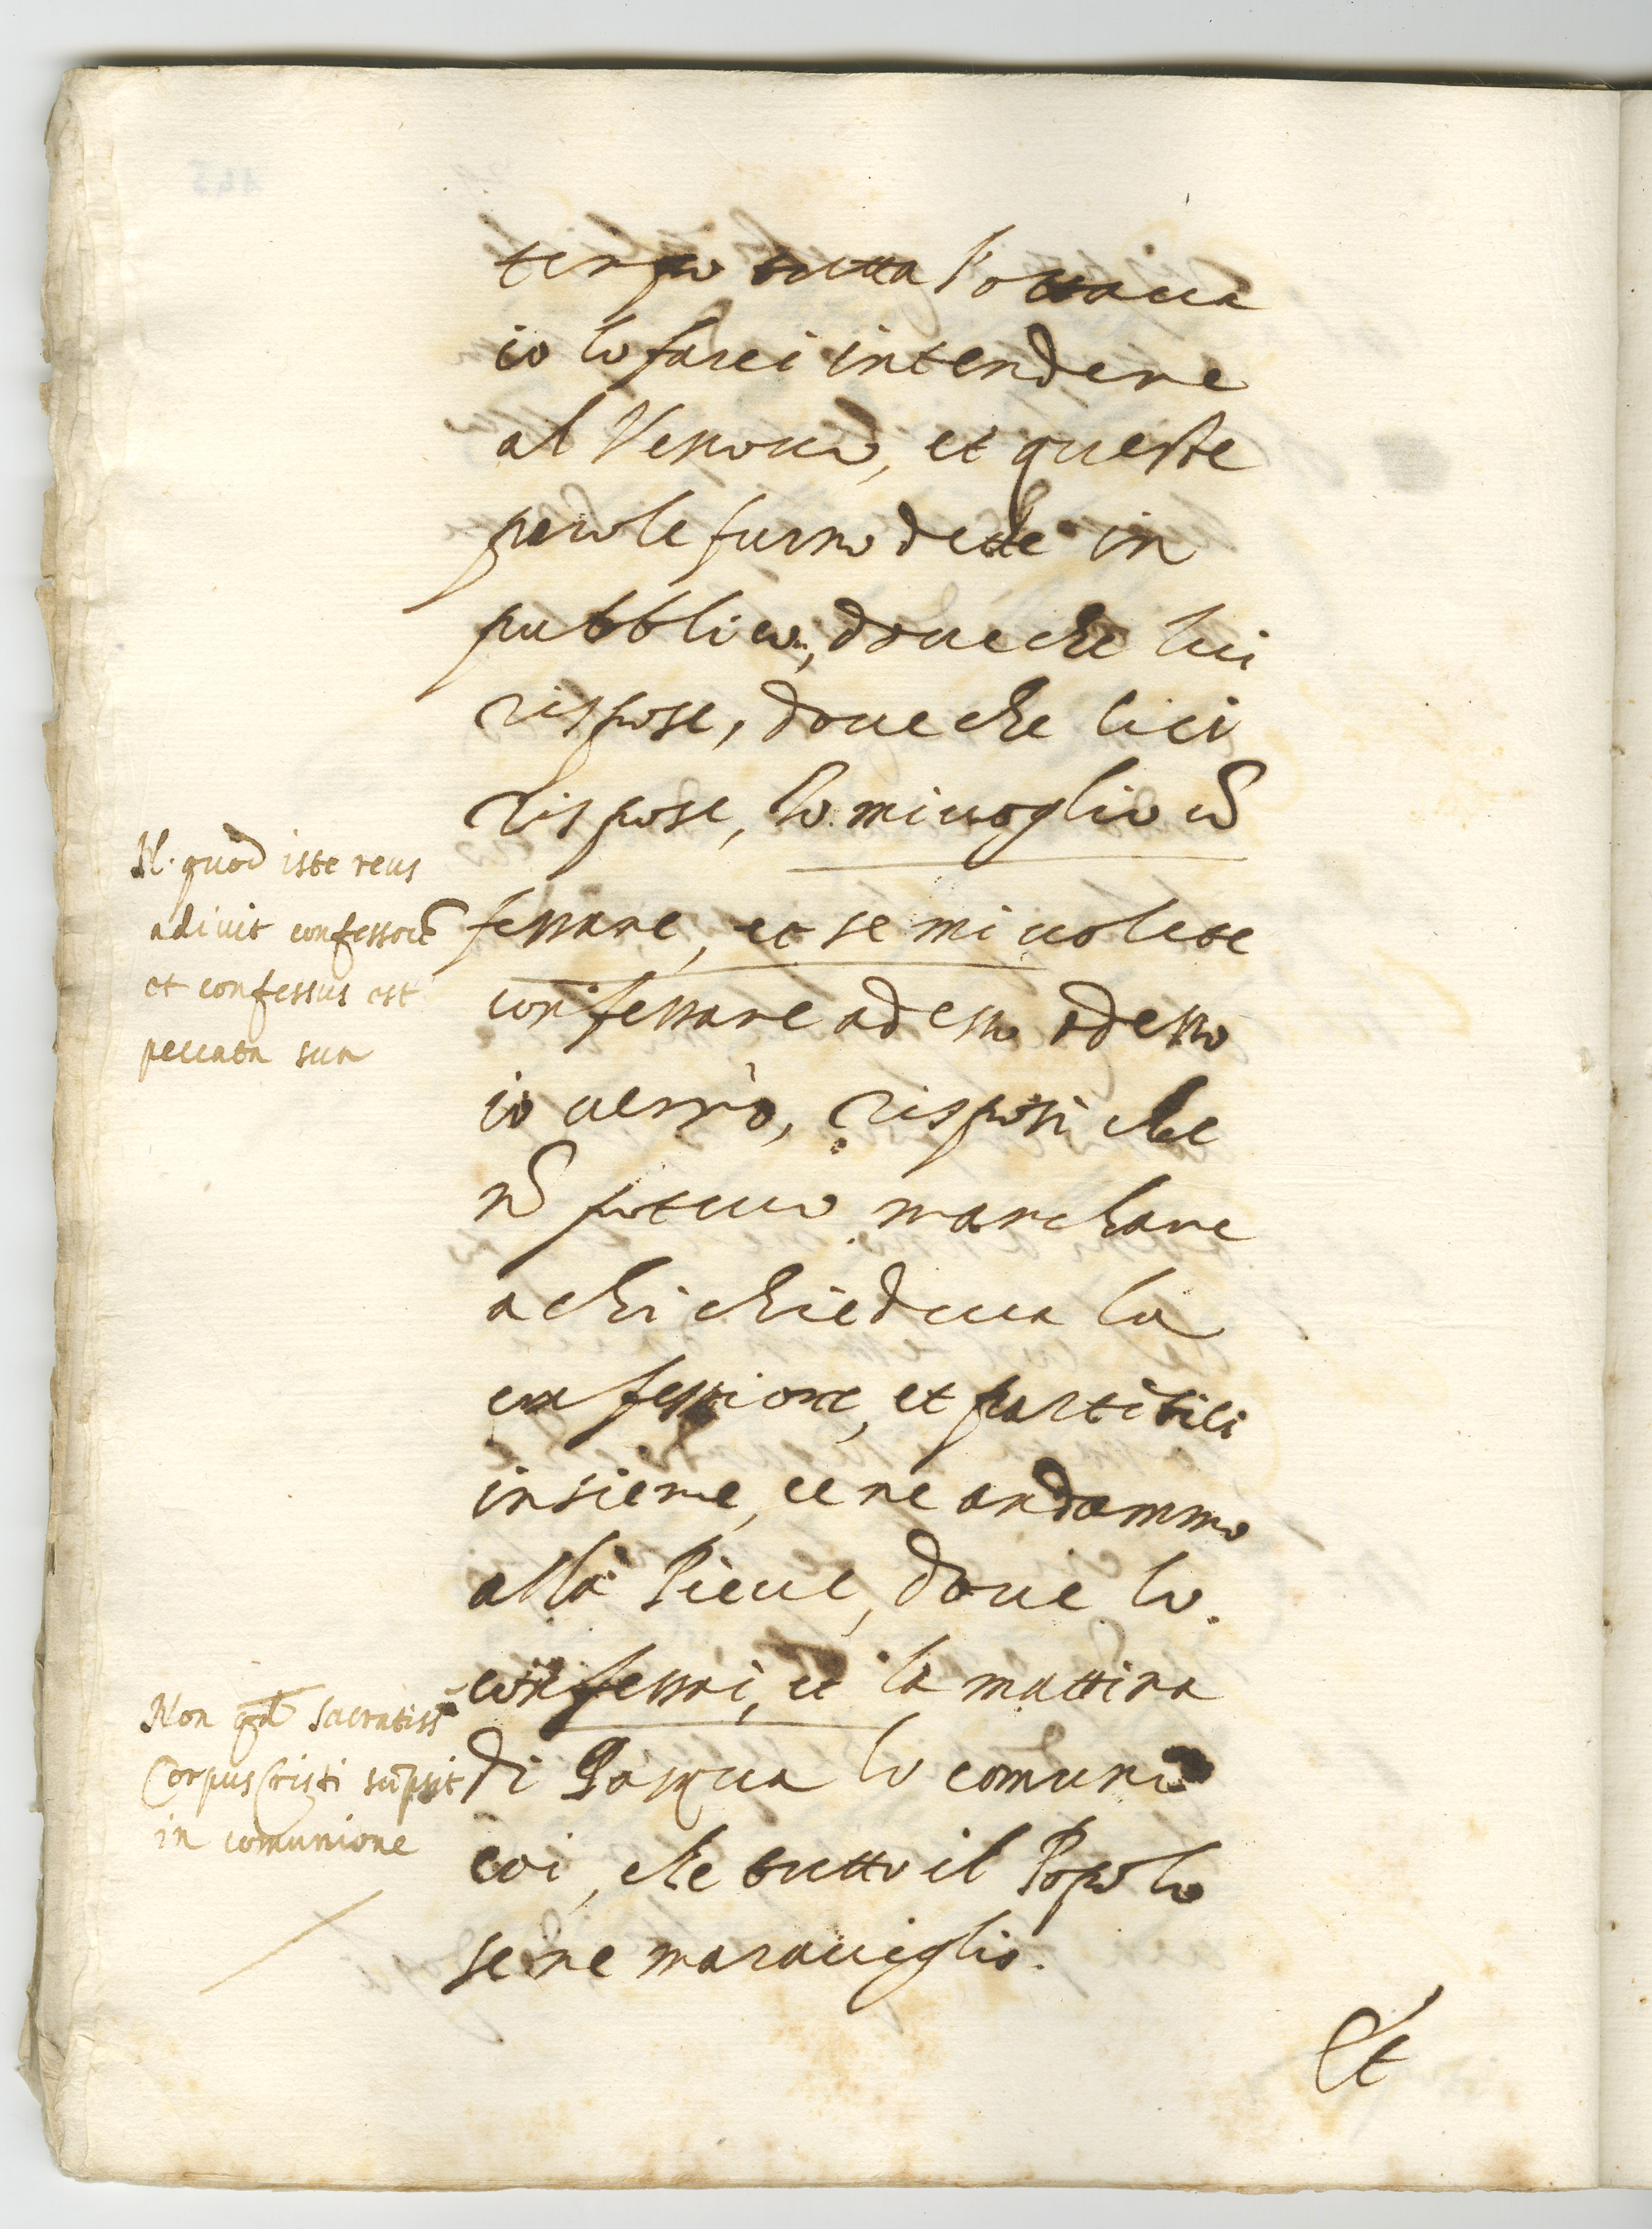 tempo tutta l'ottaua
io lo farei intendere
al Vescouo, et queste
parole furno dette in
pubblico, doue che lui
rispose, doue che lui
rispose, Io mi uoglio cõ
fessare, et se mi uolete
confessare adesso adesso
io uerrò, risposi che
nõ poteuo manchare
a chi chiedeua la
confessione, et partitici
insieme, ce ne andammo
alla Pieue, doue lo
confessai, et la mattina
di Pasqua lo comuni
coi, che tutto il Popolo
se ne marauigliò.
Et
N. quod iste reus
adiuit confessorẽ
et confessus est
peccata sua
Non sacratiss
Corpus Cristi sũpsit
in comunione